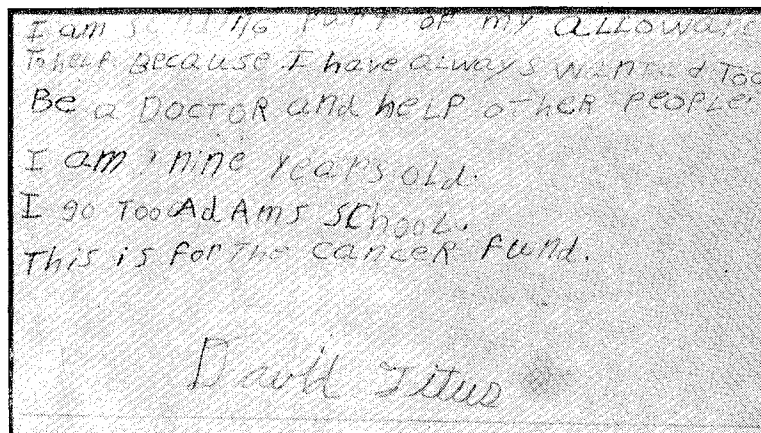 I am sending Part of my ALLOWANC
To heLP. Because I have aLways wanted Too
Be a DOCTOR and heLP otheR PeoPLe.
I am nine years oLd.
I go Too AdAms school.
This is for The canceR Fund.
David Titus